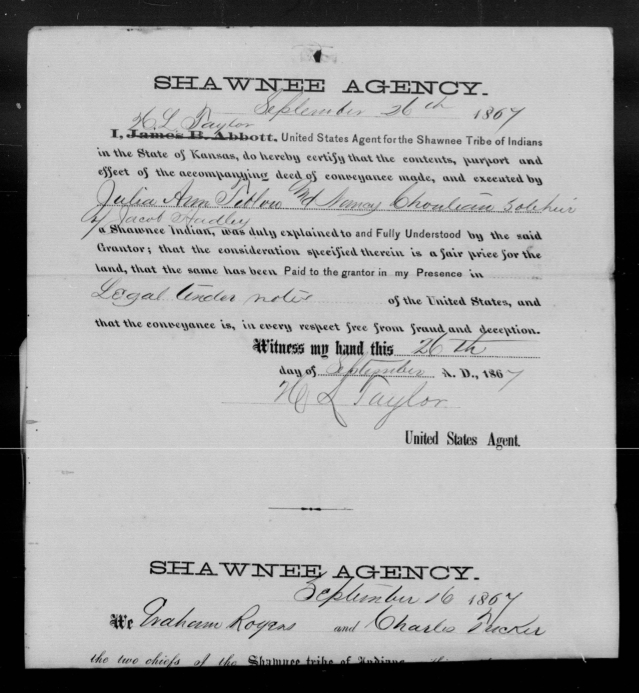 SHAWNEE AGENCY.
September 26th 1867
H L Taylor
I, James B. Abbott, United States Agent for the Shawnee Tribe of Indians
in the State of Kansas, do hereby certify that the contents, purport and
effect of the accompanying deed of conveyance made, and executed by
Julia Ann Tiblow and Nancy Chouteau sole heir
of Jacob Hadley
a Shawnee Indian, was duly explained to and Fully Understood by the said
Grantor; that the consideration specified therein is a fair price for the
land, that the same has been Paid to the grantor in my Presence in
Legal tender notes of the United States, and
that the conveyance is, in every respect free from fraud and deception.
Witness my hand this 26th
day of September A. D., 1867
H L Taylor
United States Agent.
SHAWNEE AGENCY.
September 26 1867
We Graham Rogers and Charles Tucker
the two chiefs of the Shawnee tribe of Indians